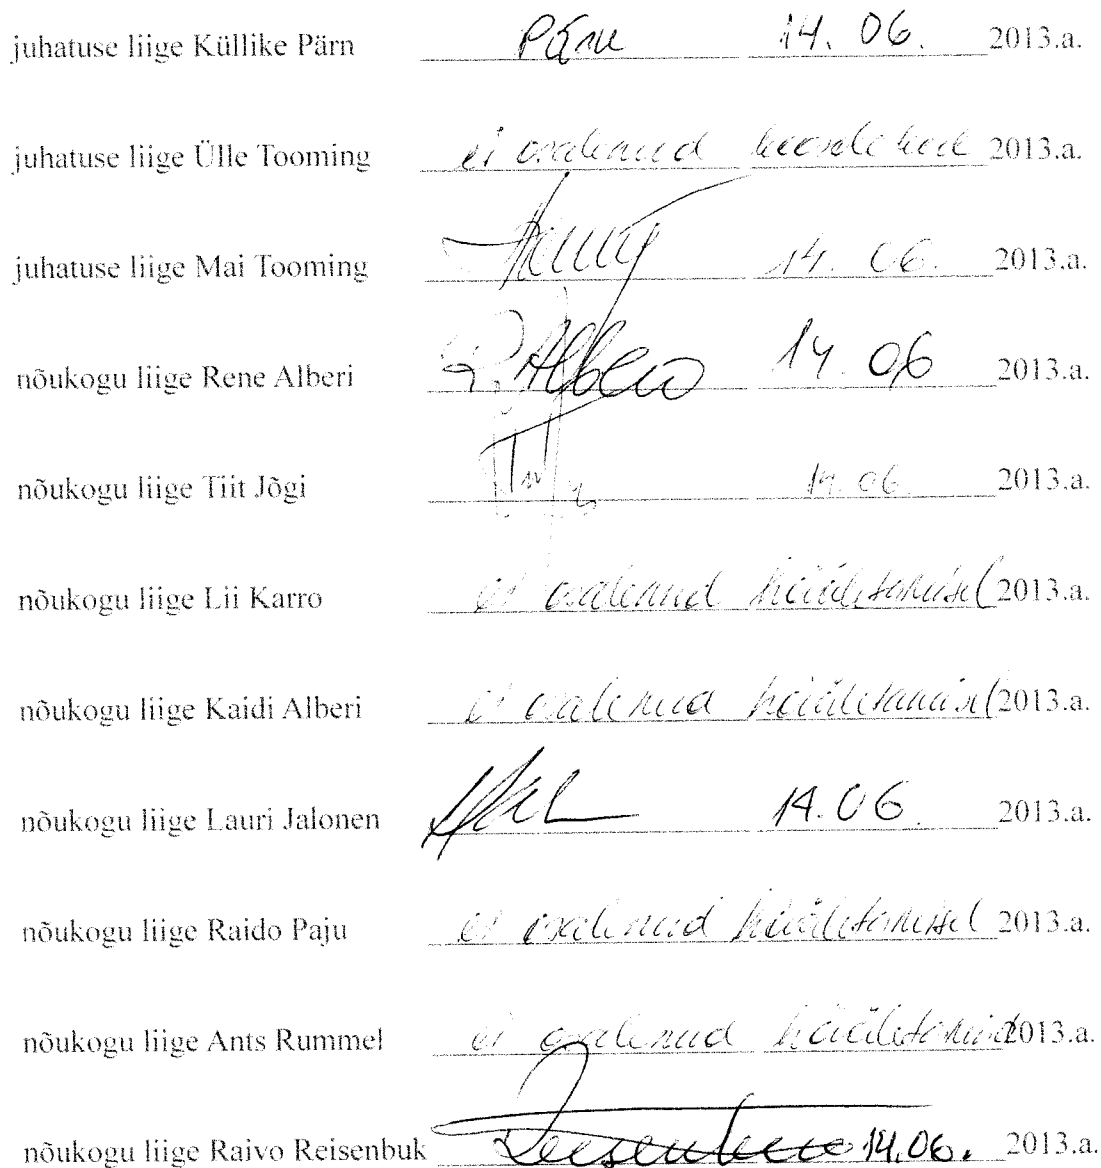 juhatuse liige Küllike Pärn Pärn 14. 06. 2013.a.
juhatuse liige Ülle Tooming ei osalenud koosolekul 2013.a.
juhatuse liige Mai Tooming 14. 06. 2013.a.
nõukogu liige Rene Alberi R. Alberi 14. 06 2013.a.
nõukogu liige Tiit Jõgi 14. 06. 2013.a.
nõukogu liige Lii Karro ei osalenud hääletamisel 2013.a.
nõukogu liige Kaidi Alberi ei osalenud hääletamisel 2013.a.
nõukogu liige Lauri Jalonen 14.06. 2013.a.
nõukogu liige Raido Paju ei osalenud hääletamisel 2013.a.
nõukogu liige Ants Rummel ei osalenud hääletamisel 2013.a.
nõukogu liige Raivo Reisenbuk 14.06. 2013.a.